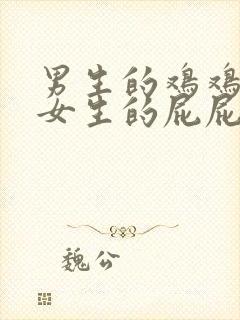 男生的鸡鸡
女生的屁屁
魏公